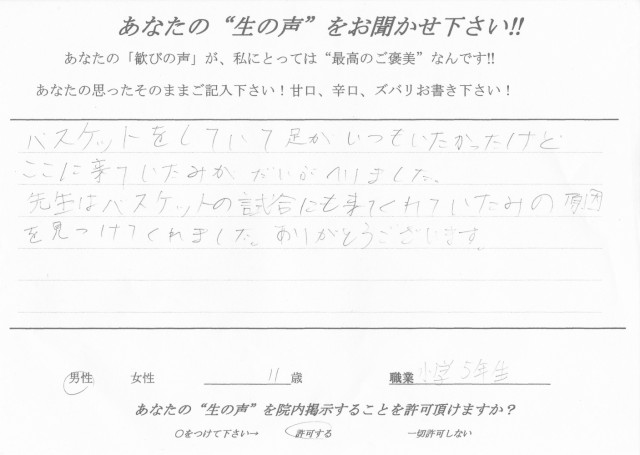 あなたの“生の声”をお聞かせ下さい!!
あなたの「歓びの声」が、私にとっては“最高のご褒美”なんです!!
あなたの思ったそのままご記入下さい！甘口、辛口、ズバリお書き下さい！
バスケットをしていて足がいつもいたかったけど
ここに来ていたみが だいぶへりました。
先生はバスケットの試合にも来てくれていたみの原因
を見つけてくれました。ありがとうございます。
男性 女性 11歳 職業 小学5年生
あなたの“生の声”を院内掲示することを許可頂けますか？
〇をつけて下さい→ 許可する 一切許可しない